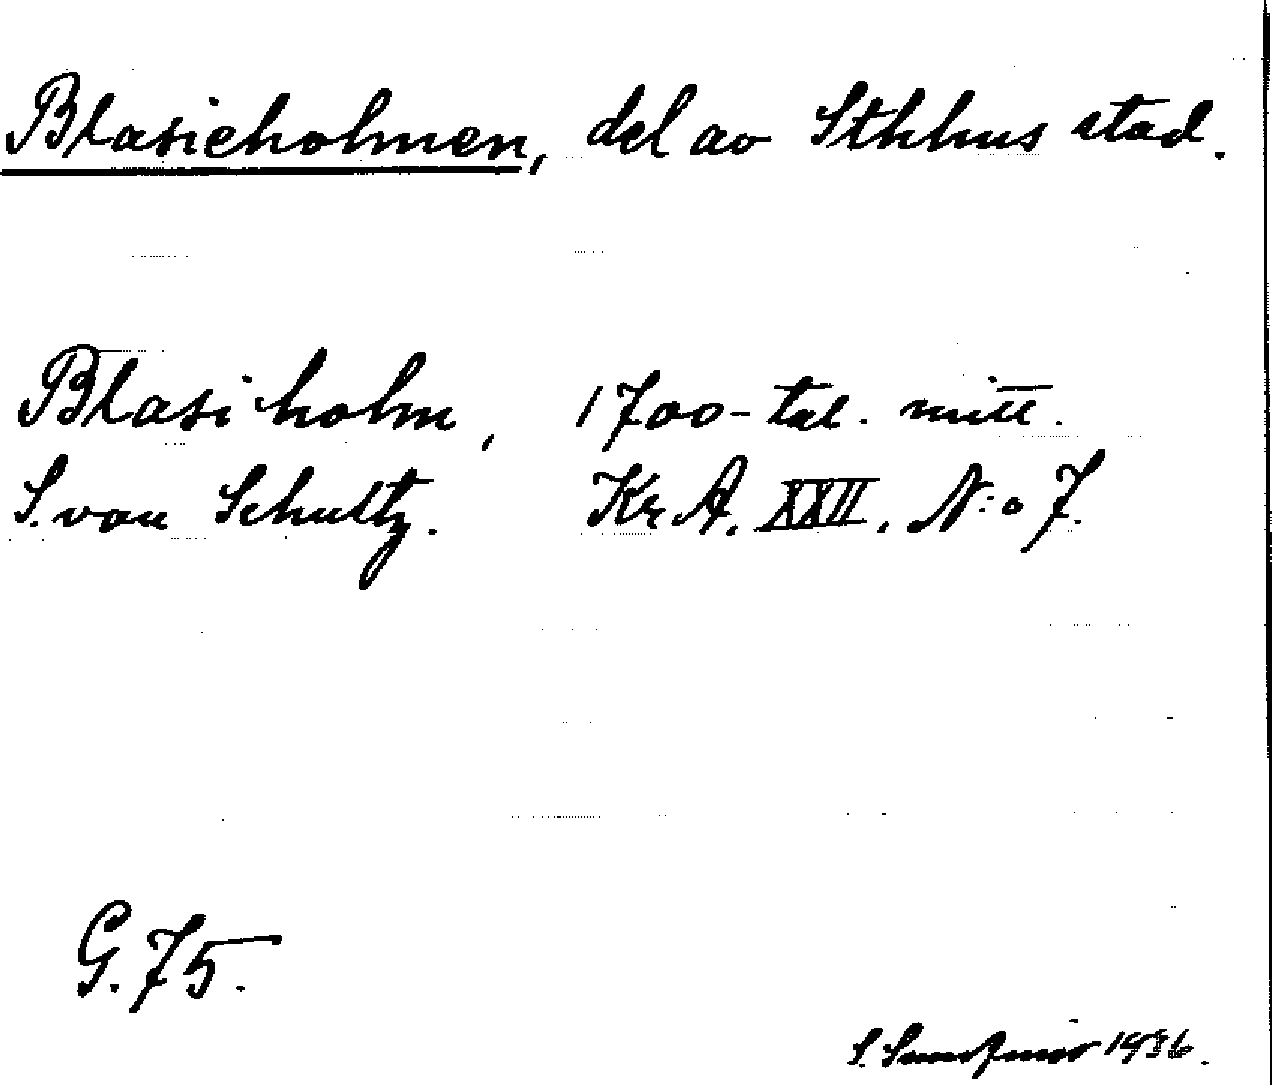 Blasieholmen, del av Sthlms stad.
Blasiholm, 1700-tal. mitt.
S. von Schultz. Kr A. XXII. N:o 7.
G. 75.
S. 1936.